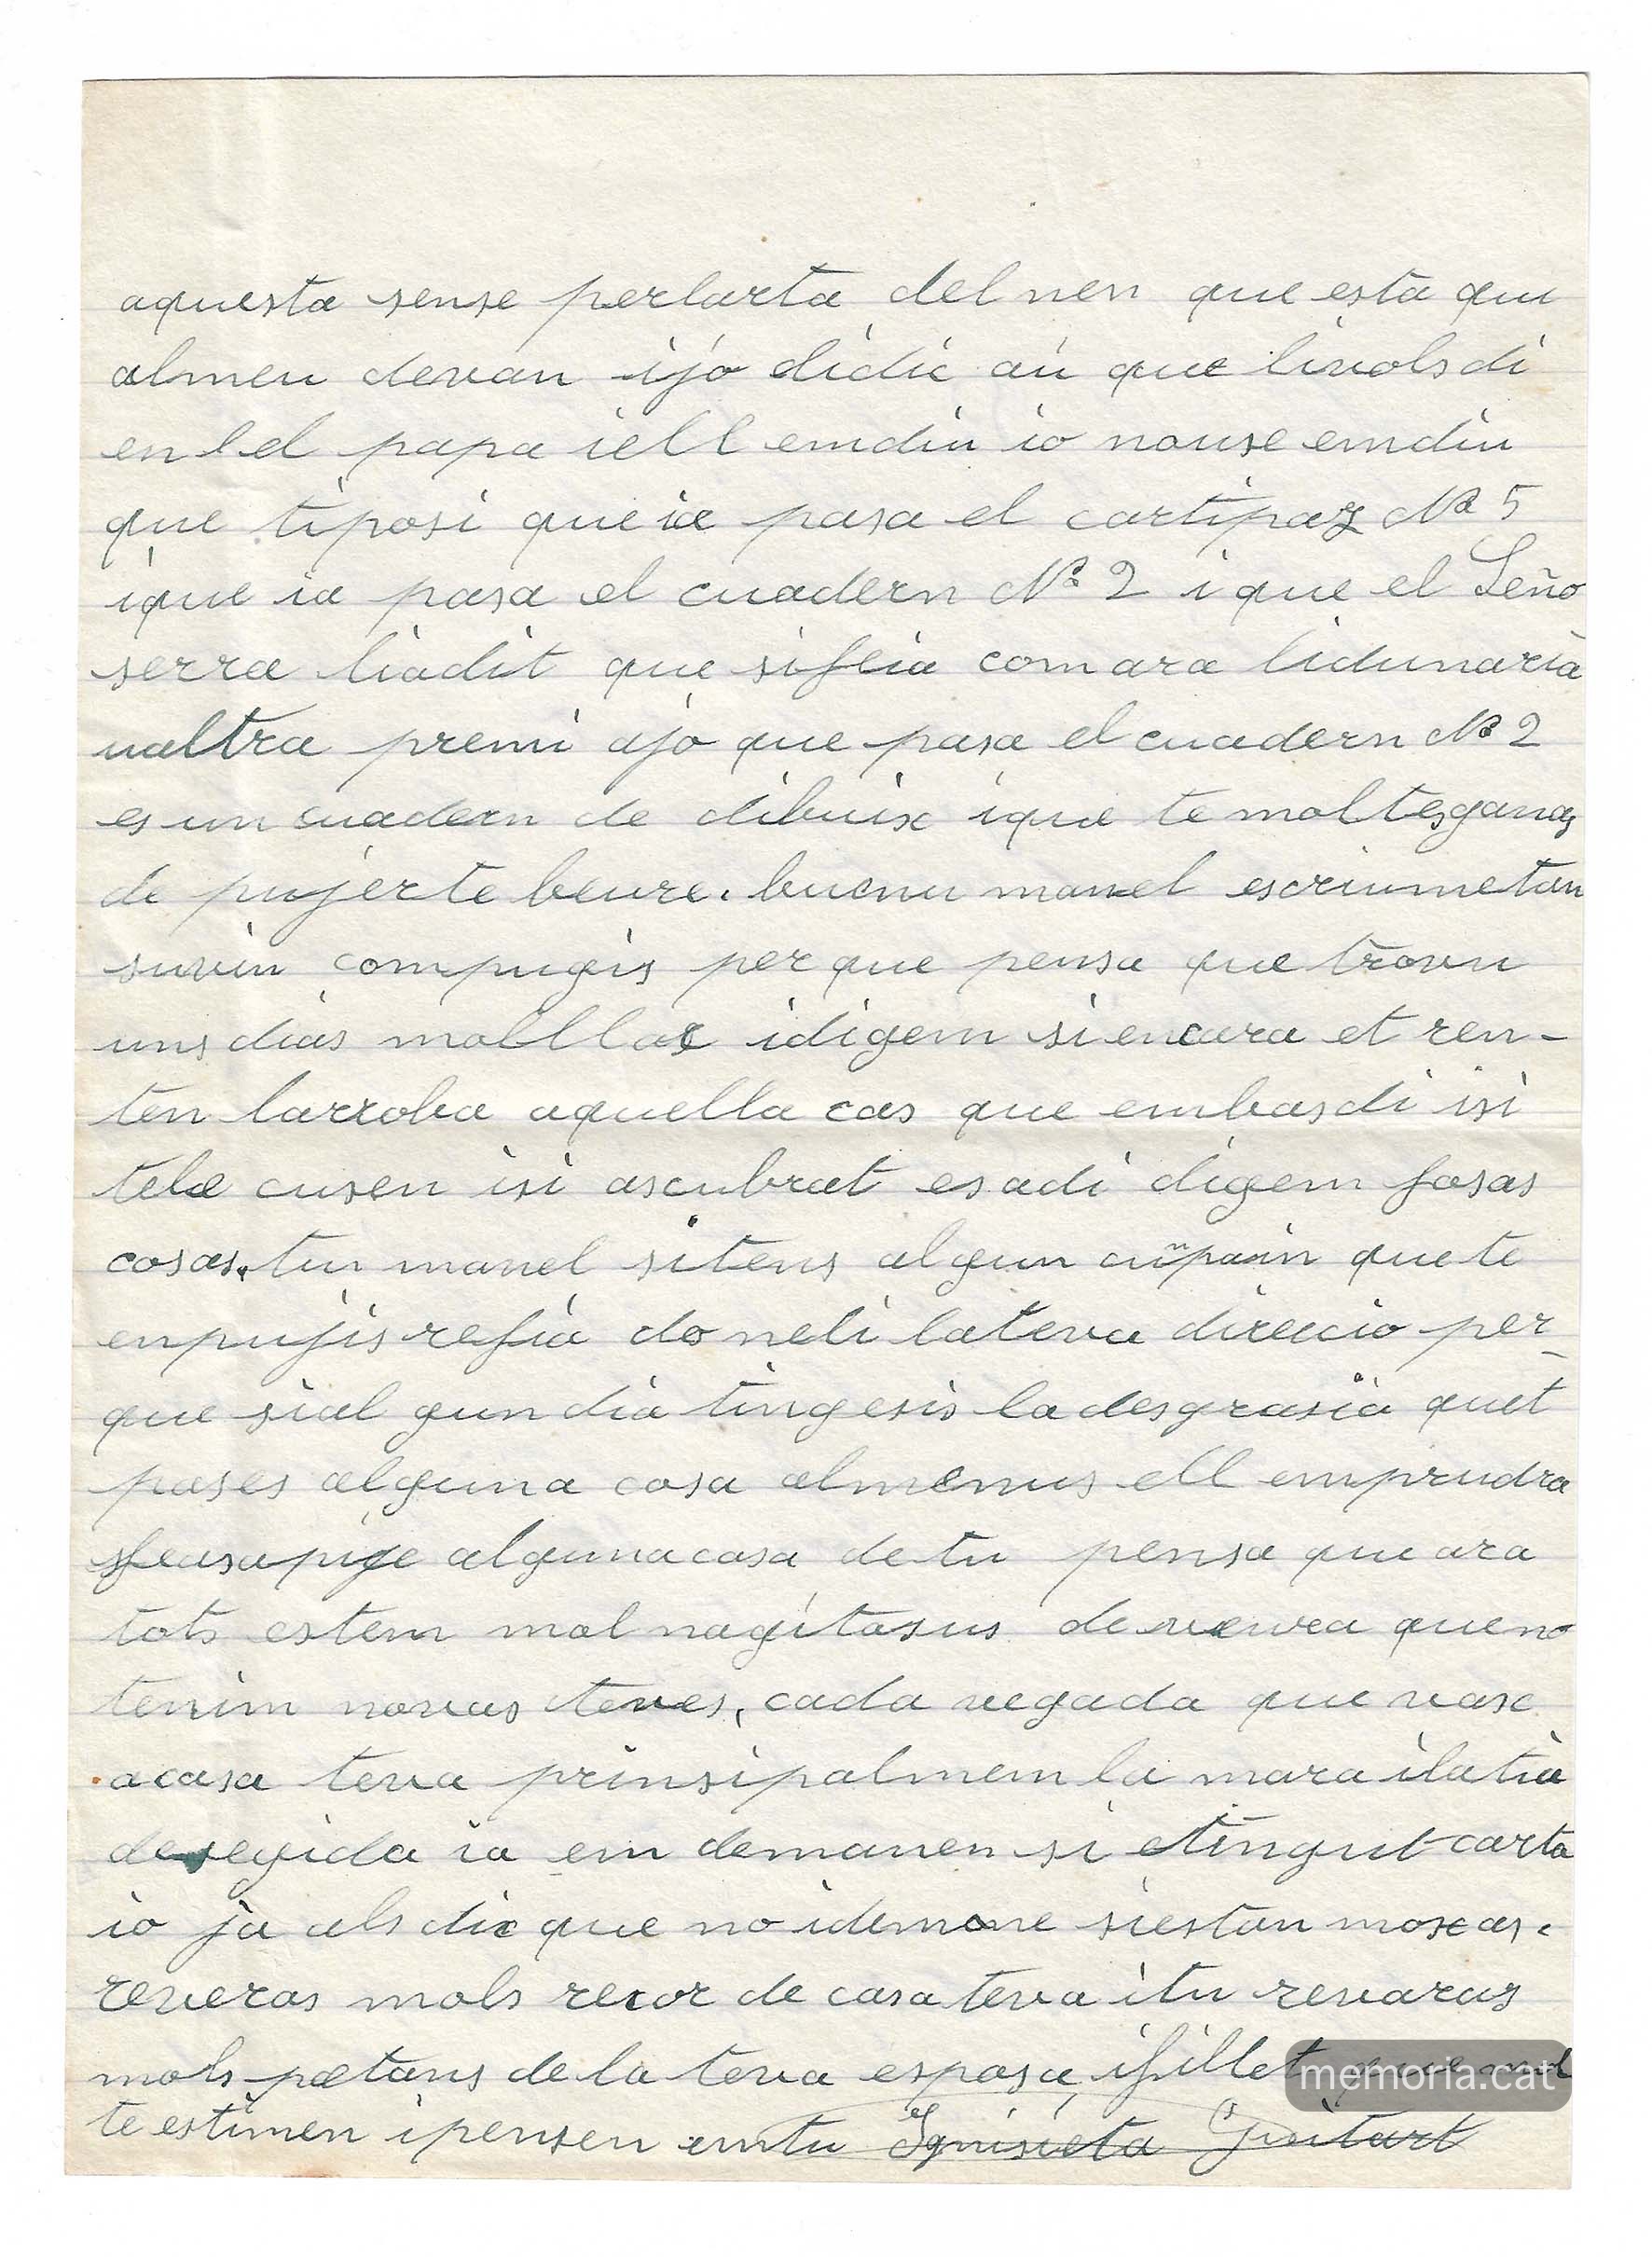 aquesta sense perlarta del nen que esta qui
almeu devan ijo didic au que livols di
en lel papa iell emdiu io nouse emdiu
que tiposi que ia pasa el cartipaz Nº 5
ique ia pasa el cuadern Nº 2 i que el Seño
serra liadit que sifeia com ara lidunaria
ualtra premi ajo que pasa el cuadern Nº 2
es un cuadern de dibuix ique te moltesganas
de pujerte beure. buenu manel escriumetan
suvin compugis per que pensa que trovu
uns dias molllac idigem siencara et ren-
ten larroba aquella cas que embasdi isi
tela cusen isi ascubrat esadi digem fosas
cosas. tu manel sitens algun cunpain que te
enpujis refia doneli lateva direcio per-
que sial gun dia tingesis ladesgrasia quet
pases alguna cosa almenus ell emprudra
feusapige algunacasa de tu pensa que ara
tots estem mal nagitasus de veurea queno
tenim novas teves, cada vegada que vasc
acasa teva prinsipalmem la mara ilatia
desegida ia em demanen si etingut carta
io ja als dic que no idemane siestan moxcas.
reveras mols recor de casa teva itu revaras
mols petans de la teva esposa, ifillet que mol
te estimen ipensen emtu Agnisieta Guitart
memoria.cat